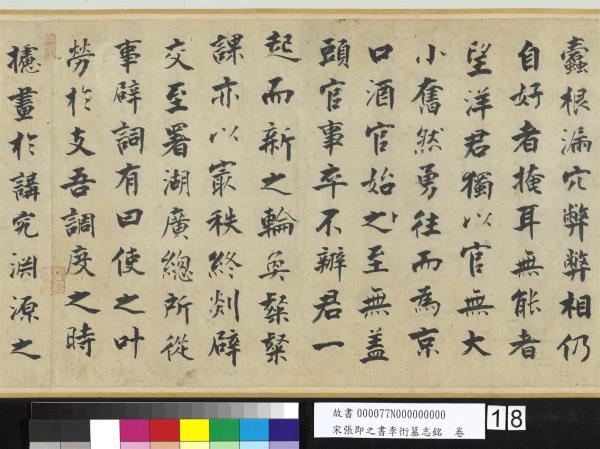 蠹根漏穴弊弊相仍
自好者掩耳無能者
望洋君獨以官無大
小奮然勇往而為京
口酒官始之至無蓋
頭官事卒不辦君一
起而新之輪奐粲粲
課亦以㝡秩終剡辟
交至署湖廣總所從
事辟詞有曰使之叶
勞於支吾調度之時
攄畫於講究淵源之
故書 000077N000000000
宋張即之書李衎墓志銘 卷
18